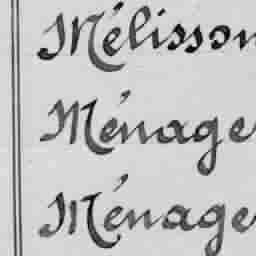 Mélisson
Ménage
Ménage